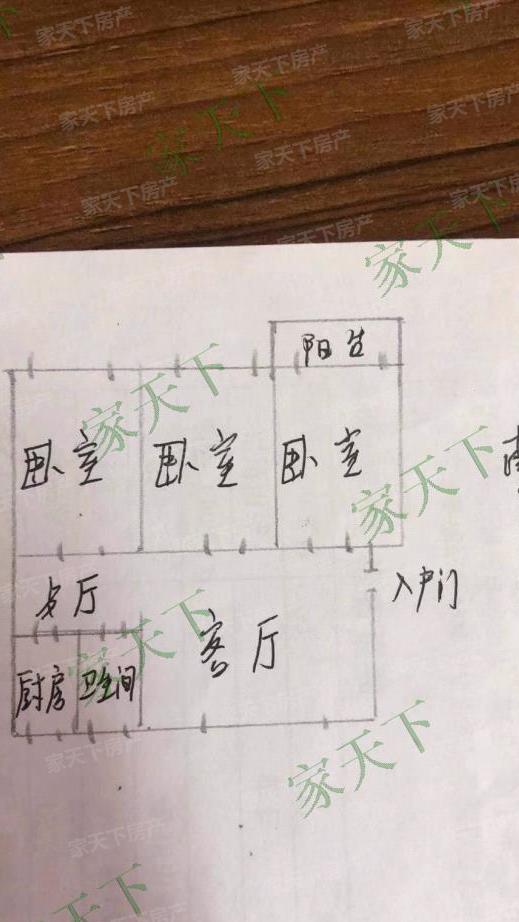 家天下房产
家天下房产
家天下
家天下房产
家天下房产
家天下房产
家天下
阳台
家天下
家天下
卧室
卧室
卧室
入户门
家天下
客厅
厨房
卫生间
家天下
家天下房产
家天下